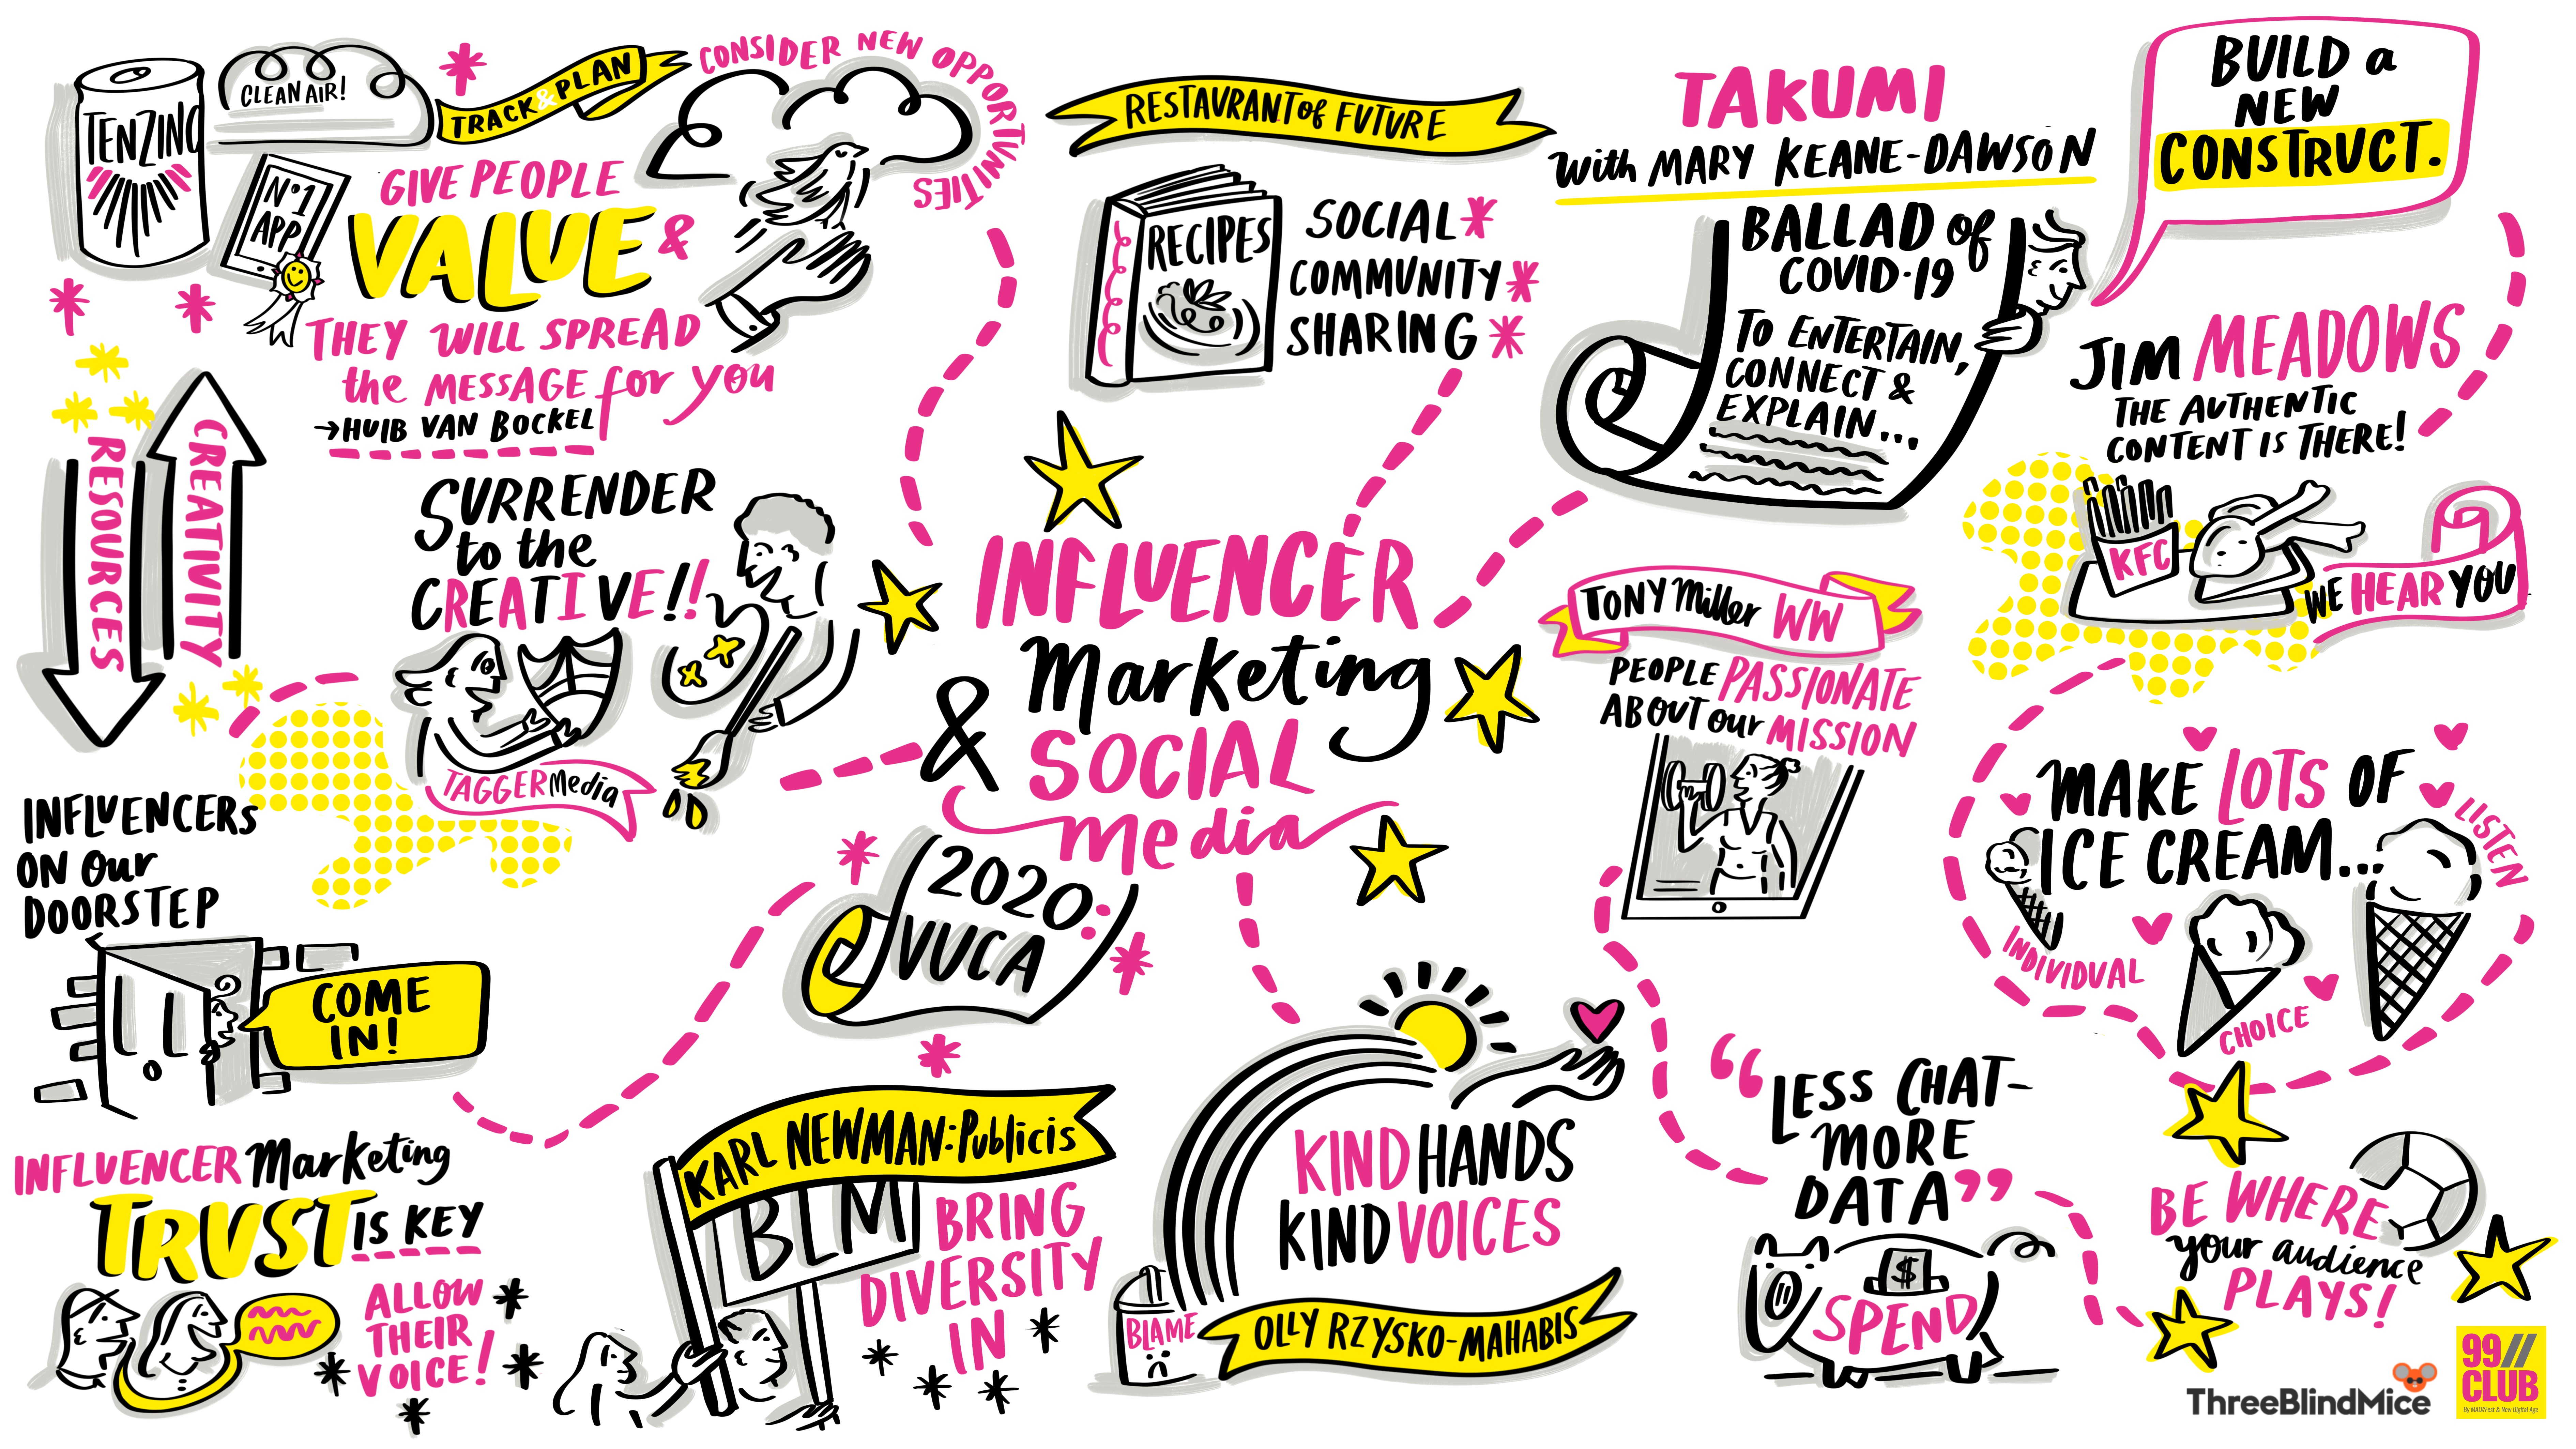 TENZING
CLEAN AIR!
TRACK & PLAN
CONSIDER NEW OPPORTUNITIES
Nº1
APP
GIVE PEOPLE
VALUE &
THEY WILL SPREAD
the MESSAGE for you
→HUIB VAN BOCKEL
RESOURCES
CREATIVITY
SURRENDER
to the
CREATIVE!!
TAGGER Media
INFLUENCERS
ON our
DOORSTEP
COME
IN!
INFLUENCER Marketing
TRUST IS KEY
ALLOW
THEIR
VOICE!
RESTAURANT of FUTURE
RECIPES
SOCIAL
COMMUNITY
SHARING
INFLUENCER
Marketing
& SOCIAL
Media
2020:
VUCA
KARL NEWMAN: Publicis
BLM
BRING
DIVERSITY
IN
KIND HANDS
KIND VOICES
BLAME
OLLY RZYSKO-MAHABIS
TAKUMI
with MARY KEANE-DAWSON
BALLAD of
COVID-19
TO ENTERTAIN,
CONNECT &
EXPLAIN...
BUILD a
NEW
CONSTRUCT.
JIM MEADOWS
THE AUTHENTIC
CONTENT IS THERE!
KFC
WE HEAR YOU
TONY Miller WW
PEOPLE PASSIONATE
ABOUT our MISSION
MAKE LOTS OF
ICE CREAM...
LISTEN
INDIVIDUAL
CHOICE
“LESS CHAT-
MORE
DATA”
$
SPEND
BE WHERE
your audience
PLAYS!
ThreeBlindMice
99//
CLUB
By MAD//Fest & New Digital Age